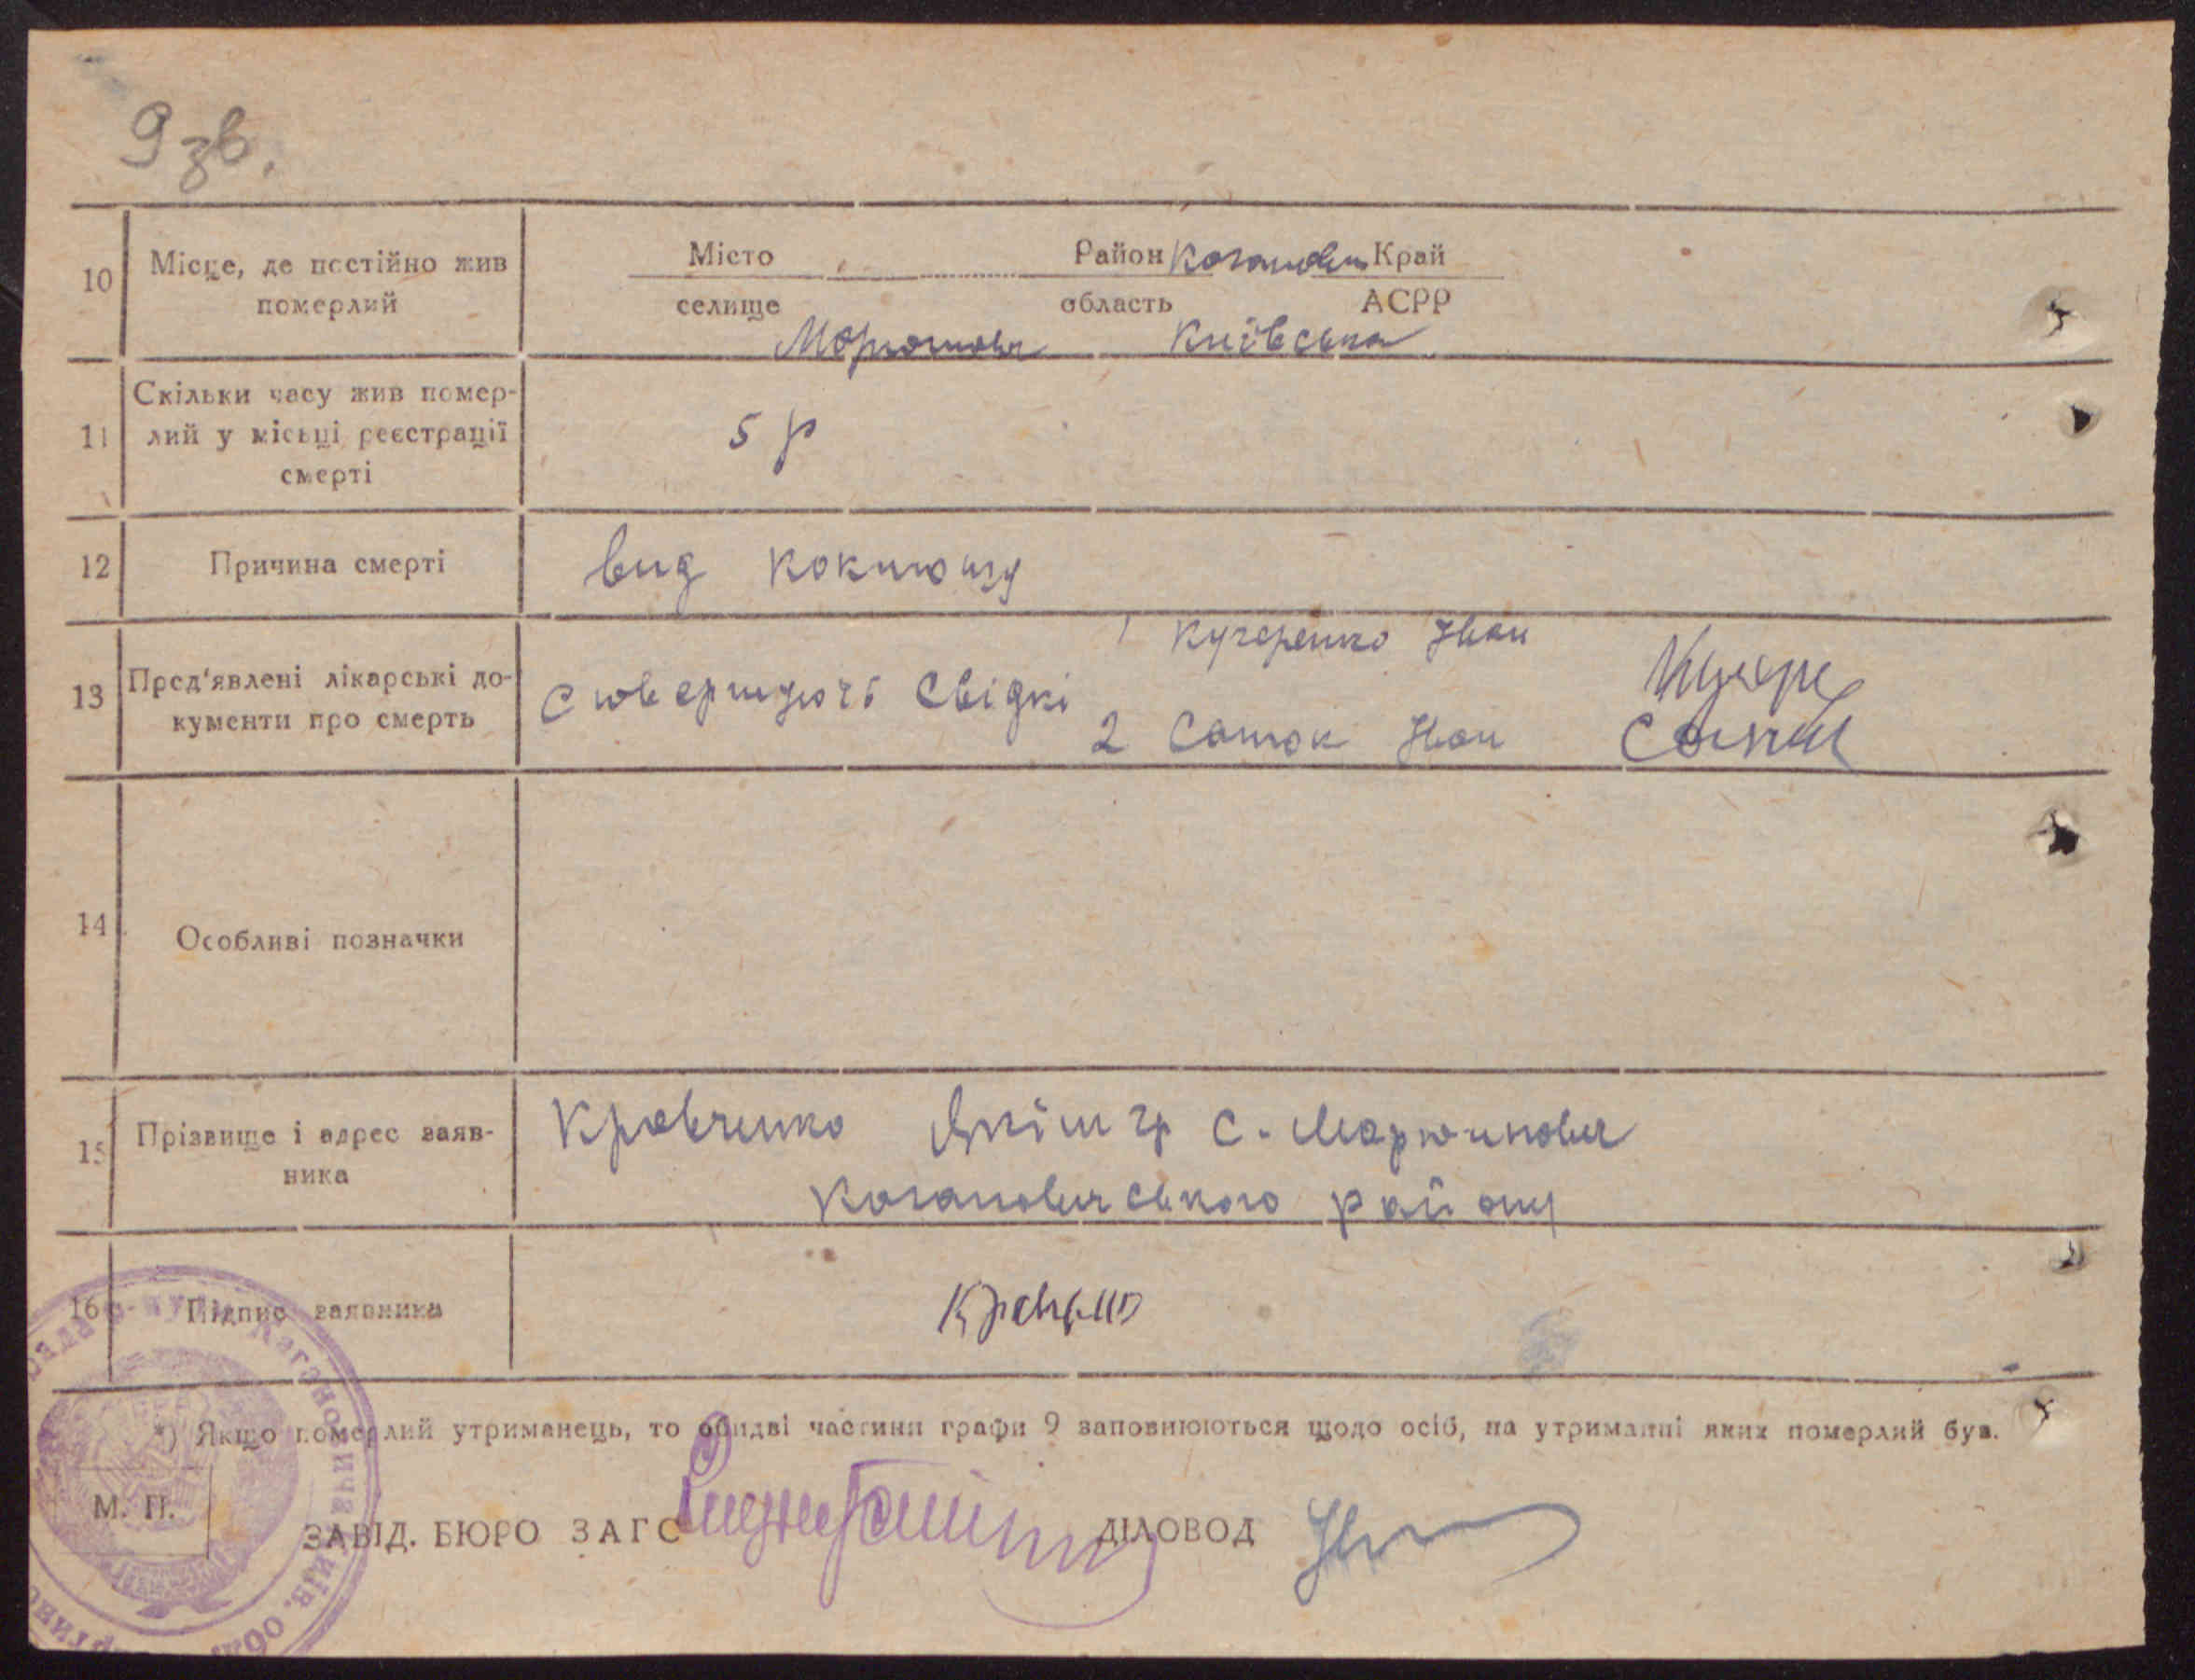 9 зв.
10 Місце, де постійно жив померлий
Місто Район Каганович Край
селище область АСРР
Мартинович Київська
11 Скільки часу жив помер-
лий у місьці реєстрації
смерті
5 р
12 Причина смерті
вид коклюшу
13 Пред'явлені лікарські до-
кументи про смерть
1 Кучеренко Іван
свідкі
2 Іван
14 Особливі позначки
15 Прізвище і адрес заяв-
ника
Кравченко Якім гр с.
Кагановичского району
16 Підпис заявника
*) Якщо померлий утриманець, то обидві частини графи 9 заповнюються щодо осіб, на утриманні яких померлий був.
М. П.
ЗАВІД. БЮРО ЗАГС ДІЛОВОД